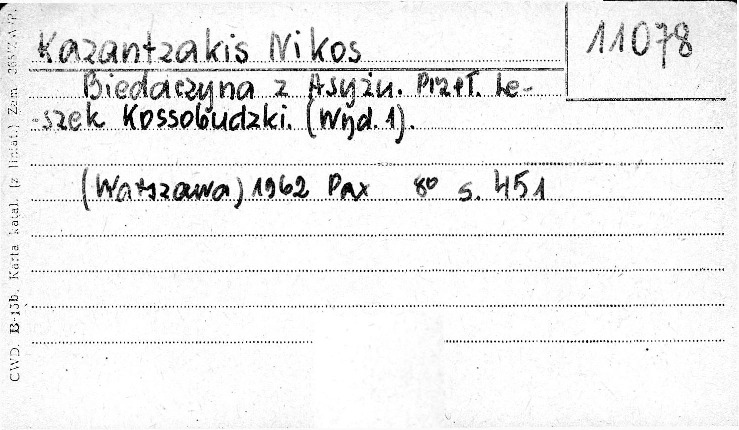 Kazantzakis Nikos
11078
Biedaczyna z Asyżu. Przeł. Le-
-szek Kossobudzki. (Wyd. 1).
(Warszawa) 1962 Pax 8° s. 451
CWD. B-13b. Karta katal. (z liniat.) Zam.